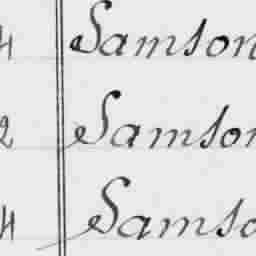 4 Samson
2 Samson
4 Samso